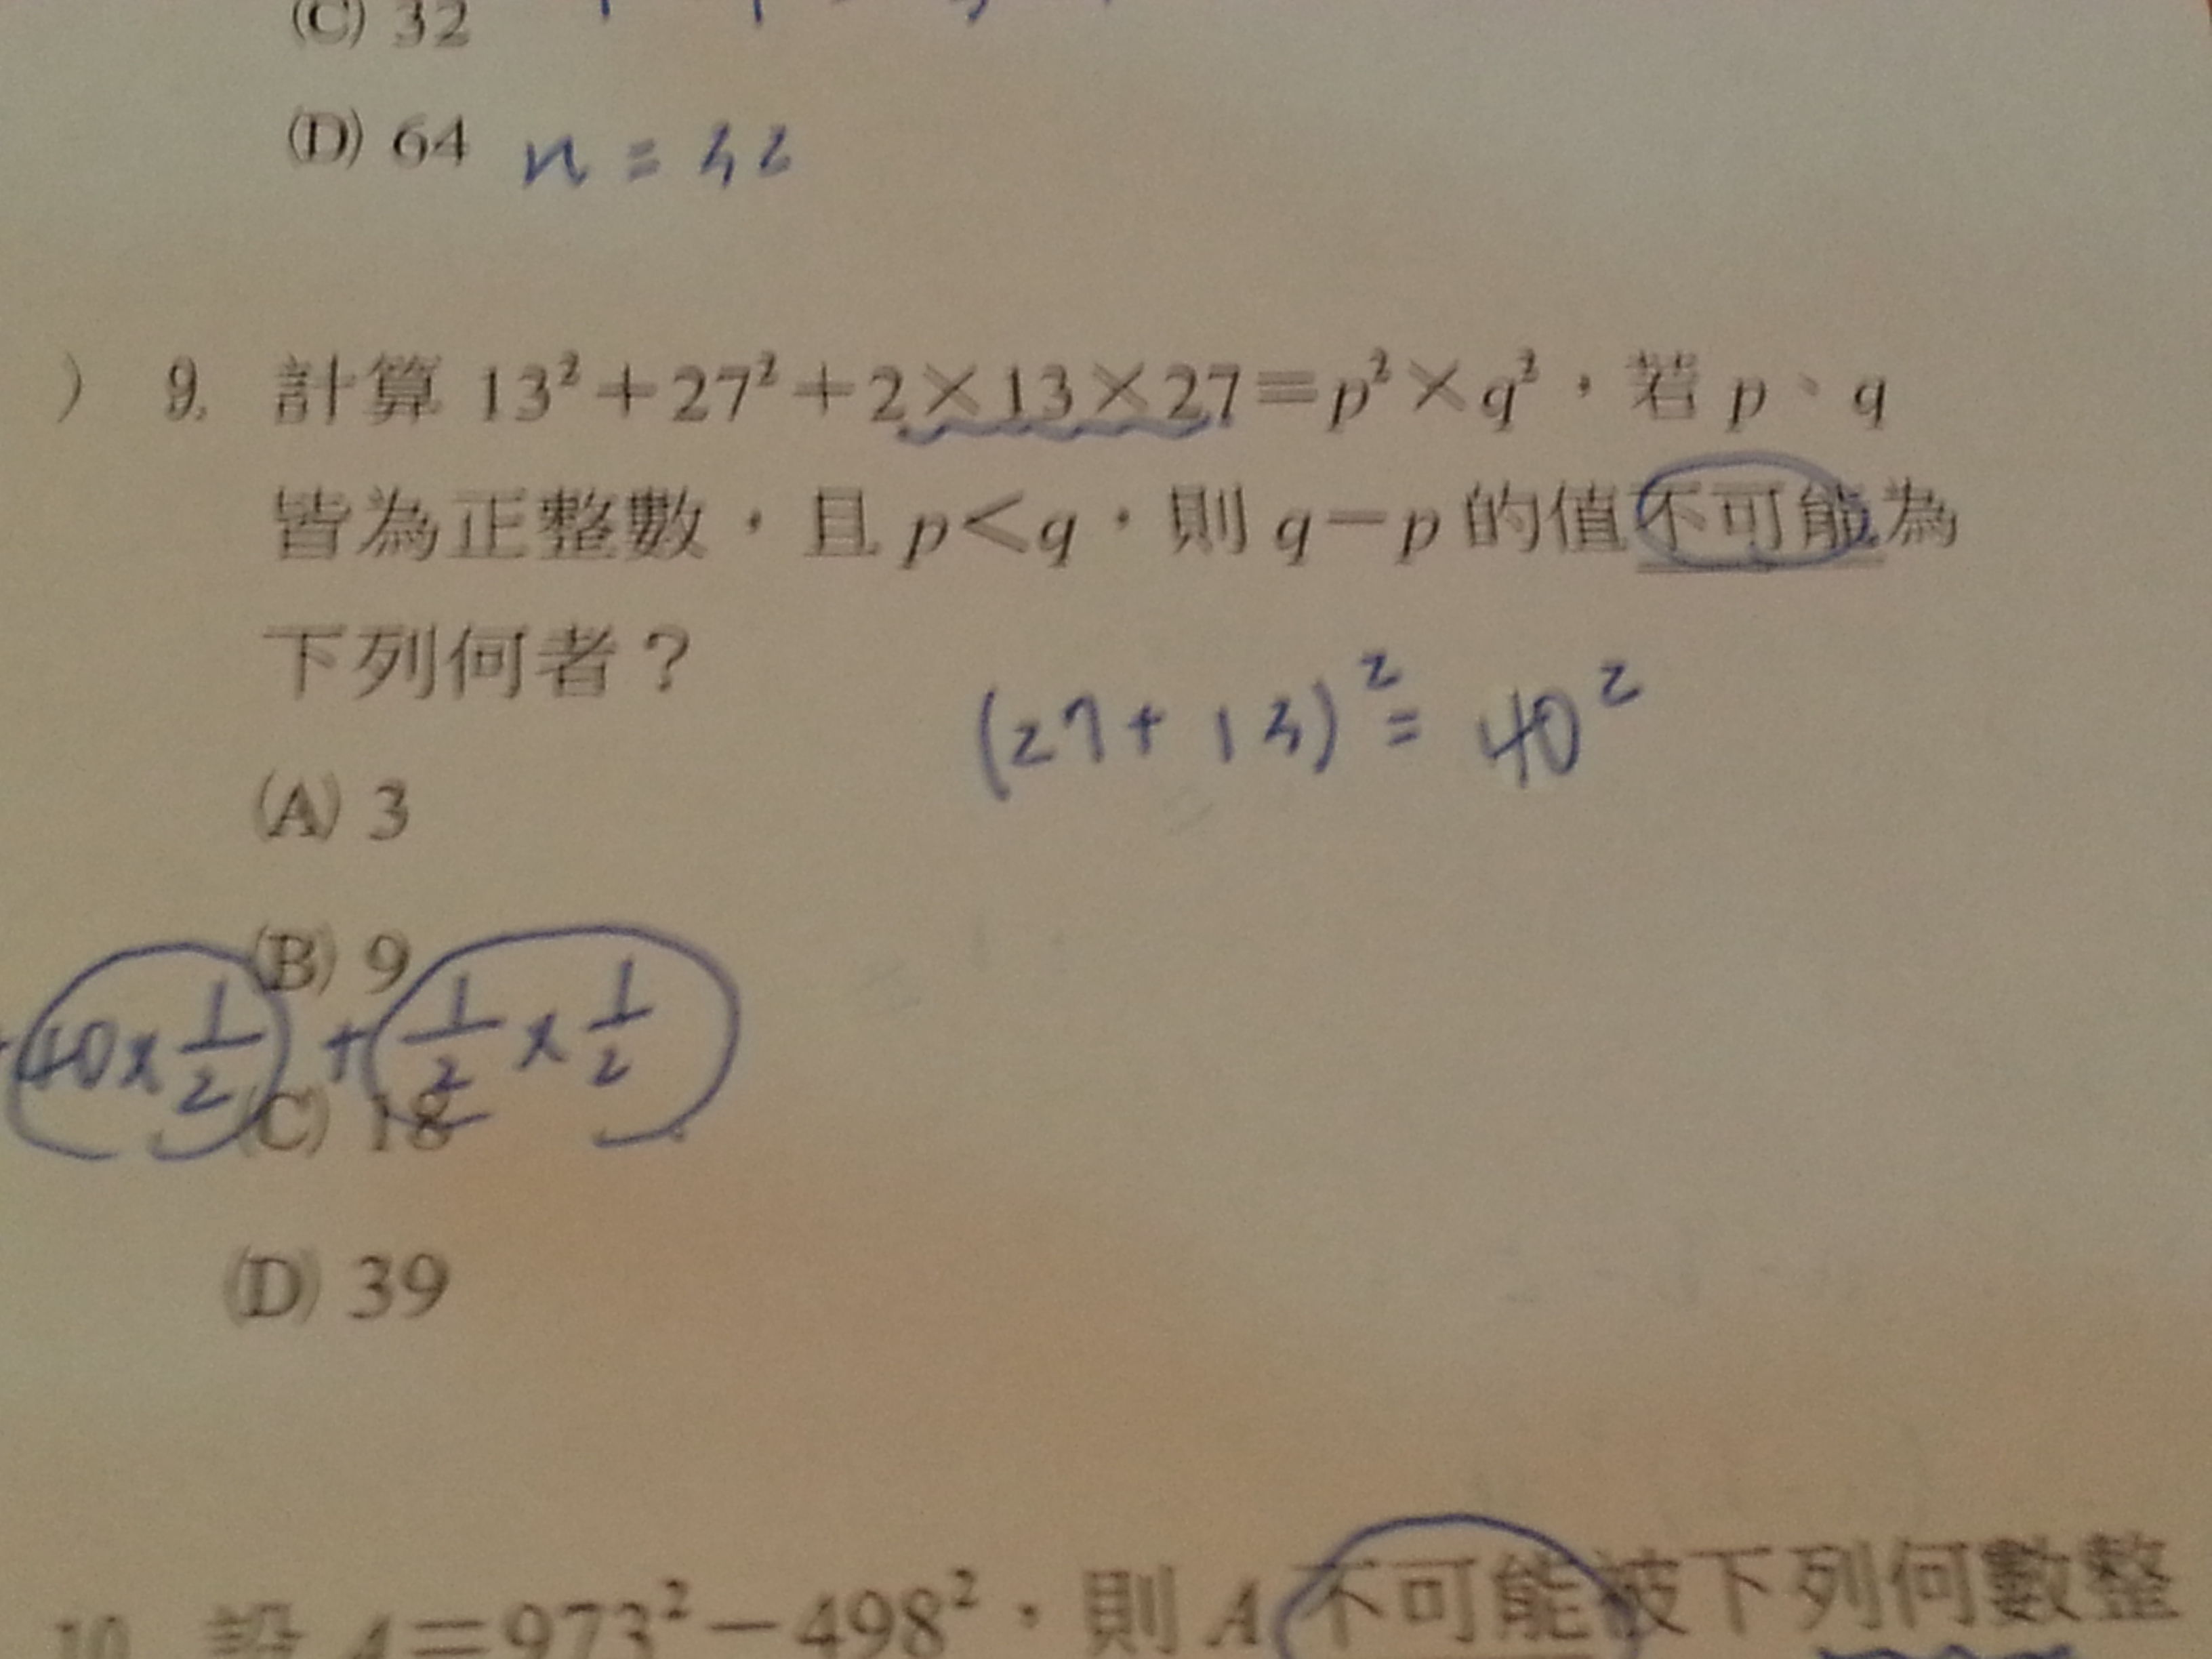 (C) 32
(D) 64 n = 32
) 9. 計算 13²+27²+2×13×27=p²×q²，若 p、q
皆為正整數，且 p<q，則 q−p 的值不可能為
下列何者？
(27+13)² = 40²
(A) 3
(B) 9
40×1/2 + 1/2 × 1/2
(C) 18
(D) 39
10. 設 A=973²−498²，則 A 不可能被下列何數整